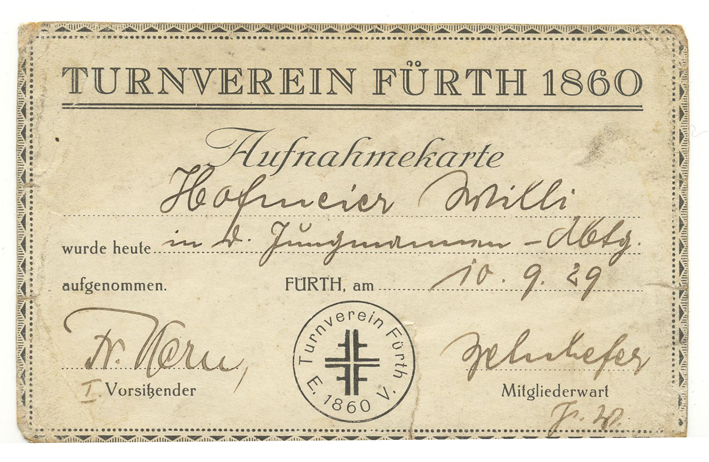 TURNVEREIN FÜRTH 1860
Aufnahmekarte
Hofmeier Willi
wurde heute in d. Jungmannen-Abtg.
aufgenommen. FÜRTH, am 10. 9. 29
Turnverein Fürth
E. 1860 V.
I. Vorsitzender
Mitgliederwart